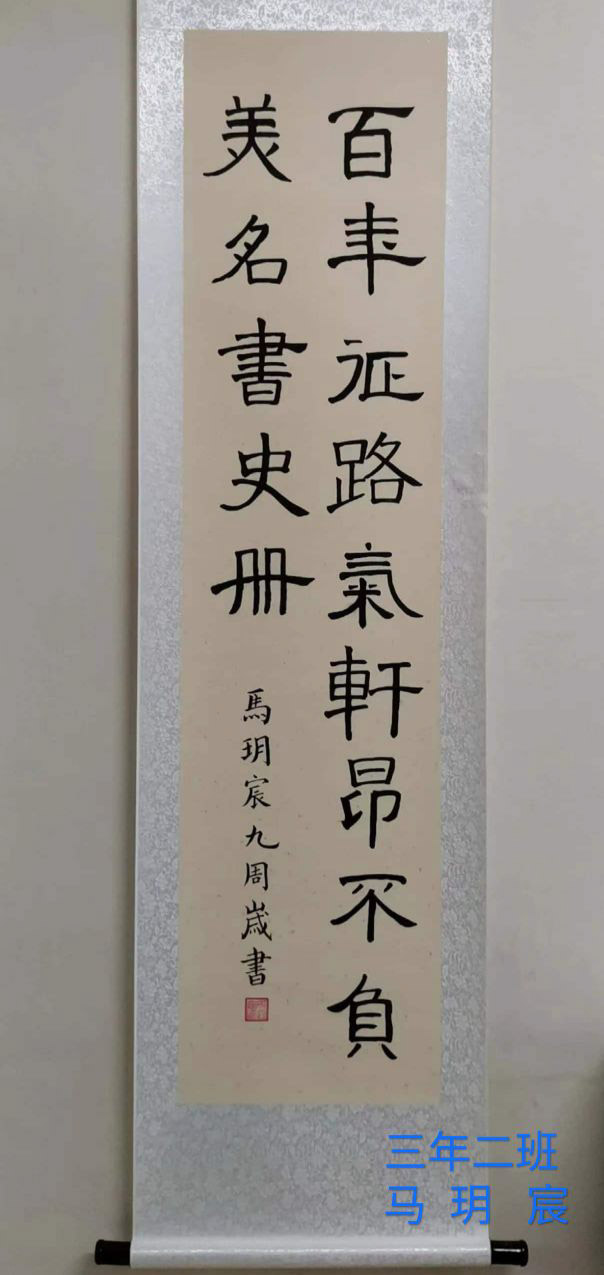 百年征路氣軒昂不負
美名書史册
馬玥宸九周歲書
三年二班
马玥宸